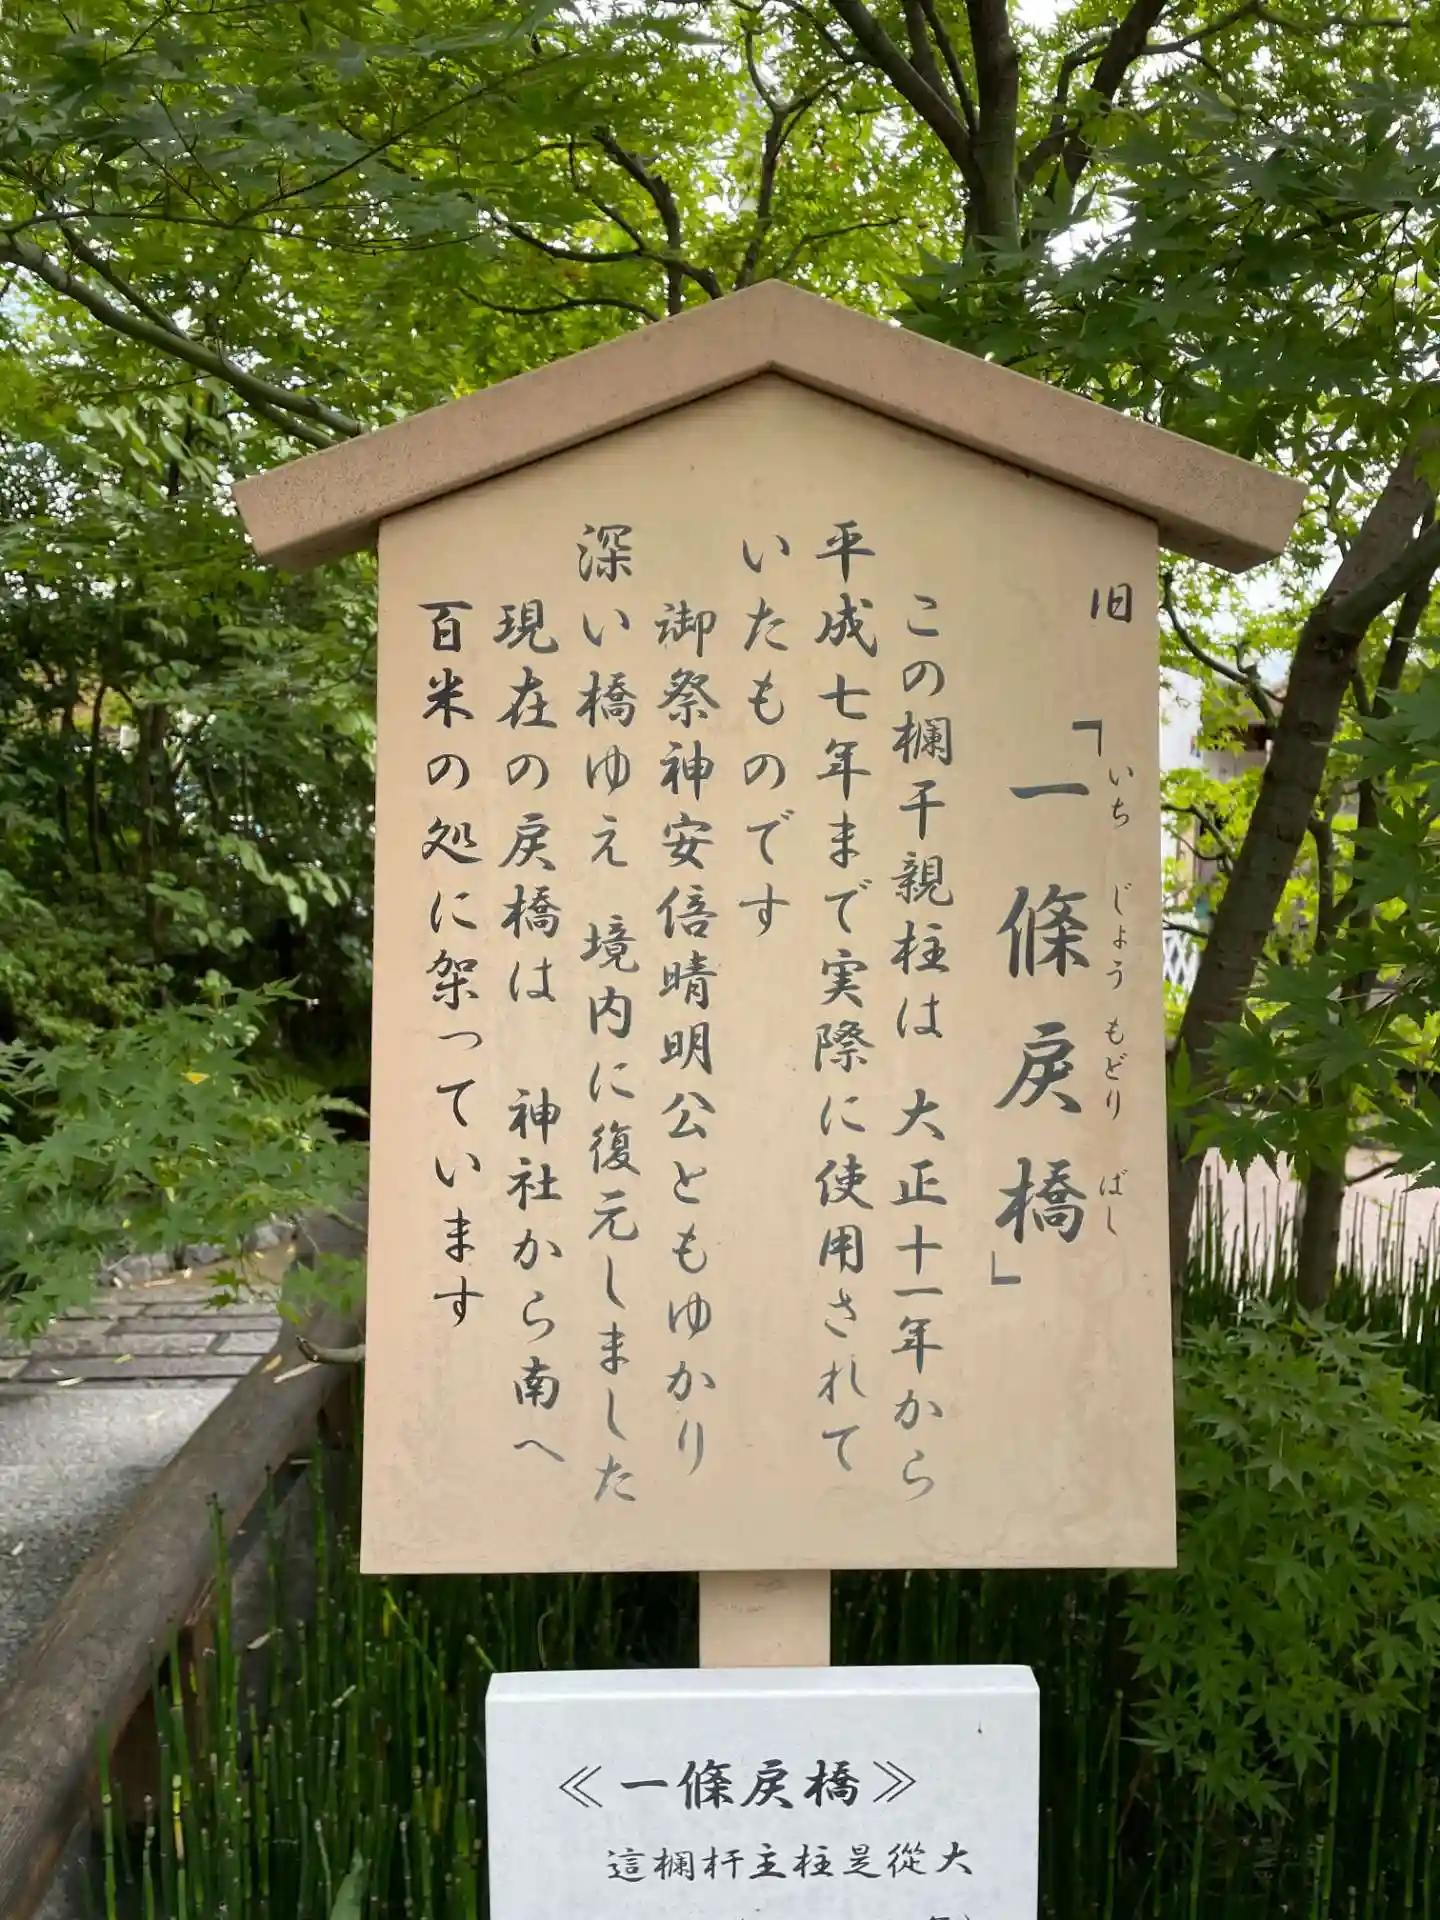 旧
「一條戻橋」
いち じょう もどり ばし
この欄干親柱は 大正十一年から
平成七年まで実際に使用されて
いたものです
御祭神安倍晴明公ともゆかり
深い橋ゆえ 境内に復元しました
現在の戻橋は 神社から南へ
百米の処に架っています
《一條戻橋》
這欄杆主柱是從大